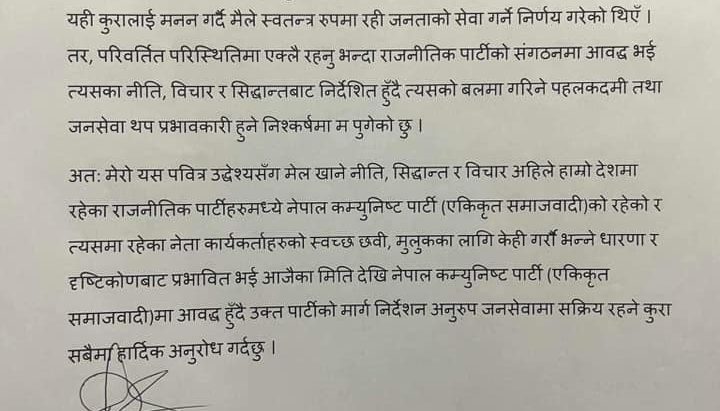 यही कुरालाई मनन गर्दै मैले स्वतन्त्र रुपमा रही जनताको सेवा गर्ने निर्णय गरेको थिएँ ।
तर, परिवर्तित परिस्थितिमा एक्लै रहनु भन्दा राजनीतिक पार्टीको संगठनमा आवद्ध भई
त्यसका नीति, विचार र सिद्धान्तबाट निर्देशित हुँदै त्यसको बलमा गरिने पहलकदमी तथा
जनसेवा थप प्रभावकारी हुने निश्कर्षमा म पुगेको छु ।
अत: मेरो यस पवित्र उद्धेश्यसँग मेल खाने नीति, सिद्धान्त र विचार अहिले हाम्रो देशमा
रहेका राजनीतिक पार्टीहरुमध्ये नेपाल कम्युनिष्ट पार्टी (एकिकृत समाजवादी)को रहेको र
त्यसमा रहेका नेता कार्यकर्ताहरुको स्वच्छ छवी, मुलुकका लागि केही गरौं भन्ने धारणा र
दृष्टिकोणबाट प्रभावित भई आजैका मिति देखि नेपाल कम्युनिष्ट पार्टी (एकिकृत
समाजवादी)मा आवद्ध हुँदै उक्त पार्टीको मार्ग निर्देशन अनुरुप जनसेवामा सक्रिय रहने कुरा
सबैमा हार्दिक अनुरोध गर्दछु ।